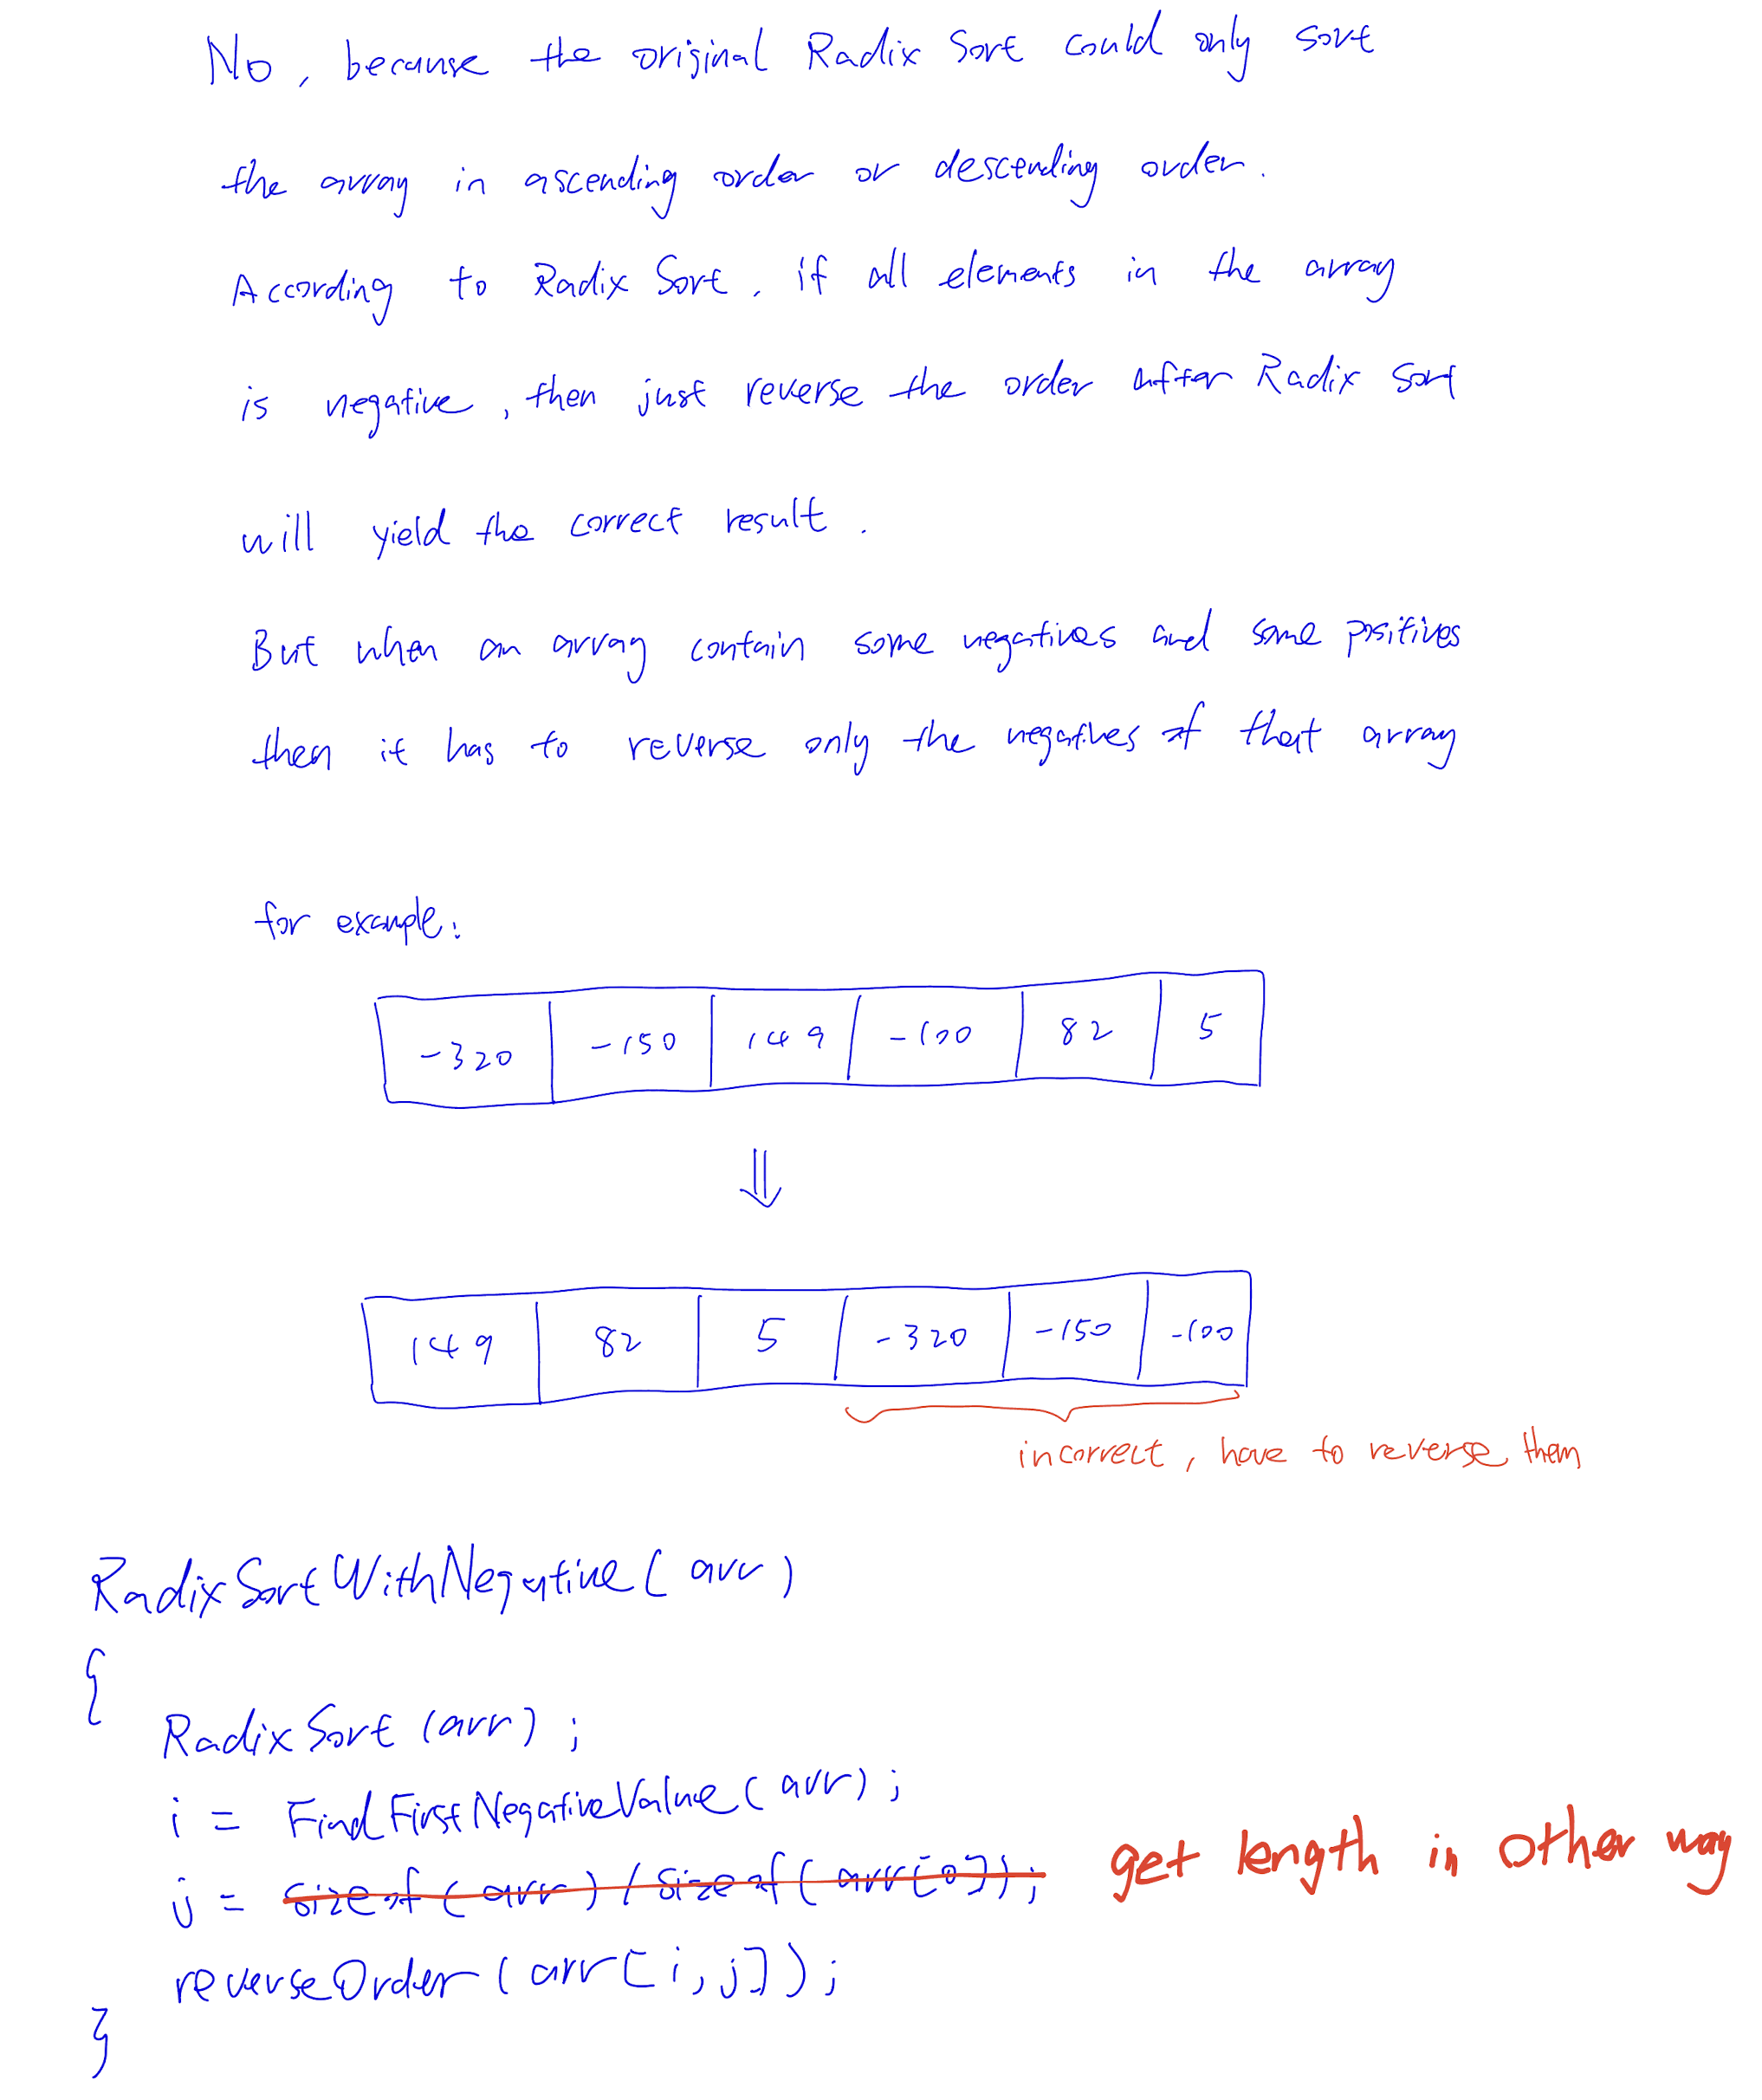 No, because the original Radix Sort could only sort
the array in ascending order or descending order.
According to Radix Sort, if all elements in the array
is negative, then just reverse the order after Radix Sort
will yield the correct result.
But when an array contain some negatives and some positives
then it has to reverse only the negatives of that array
for example:
-320 -150 149 -100 82 5
149 82 5 -320 -150 -100
incorrect, have to reverse them
RadixSortWithNegative(arr)
{
RadixSort(arr);
i = FindFirstNegativeValue(arr);
j = sizeof(arr)/sizeof(arr[0]); get length in other way
reverseOrder(arr[i,j]);
}